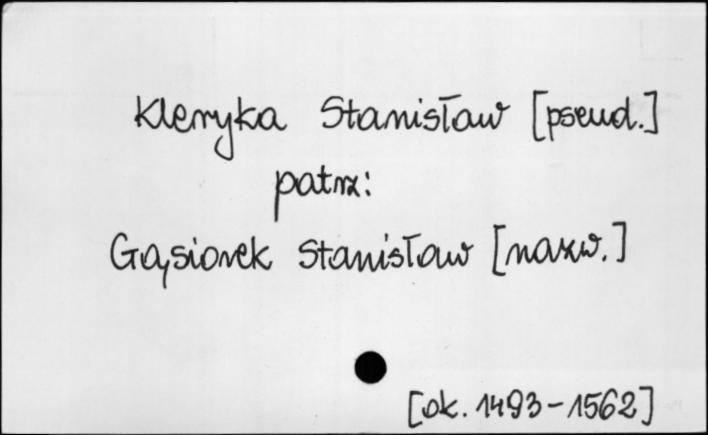 Kleryka Stanisław [pseud.]
patrz:
Gąsiorek Stanisław [nazw.]
[ok. 1493-1562]